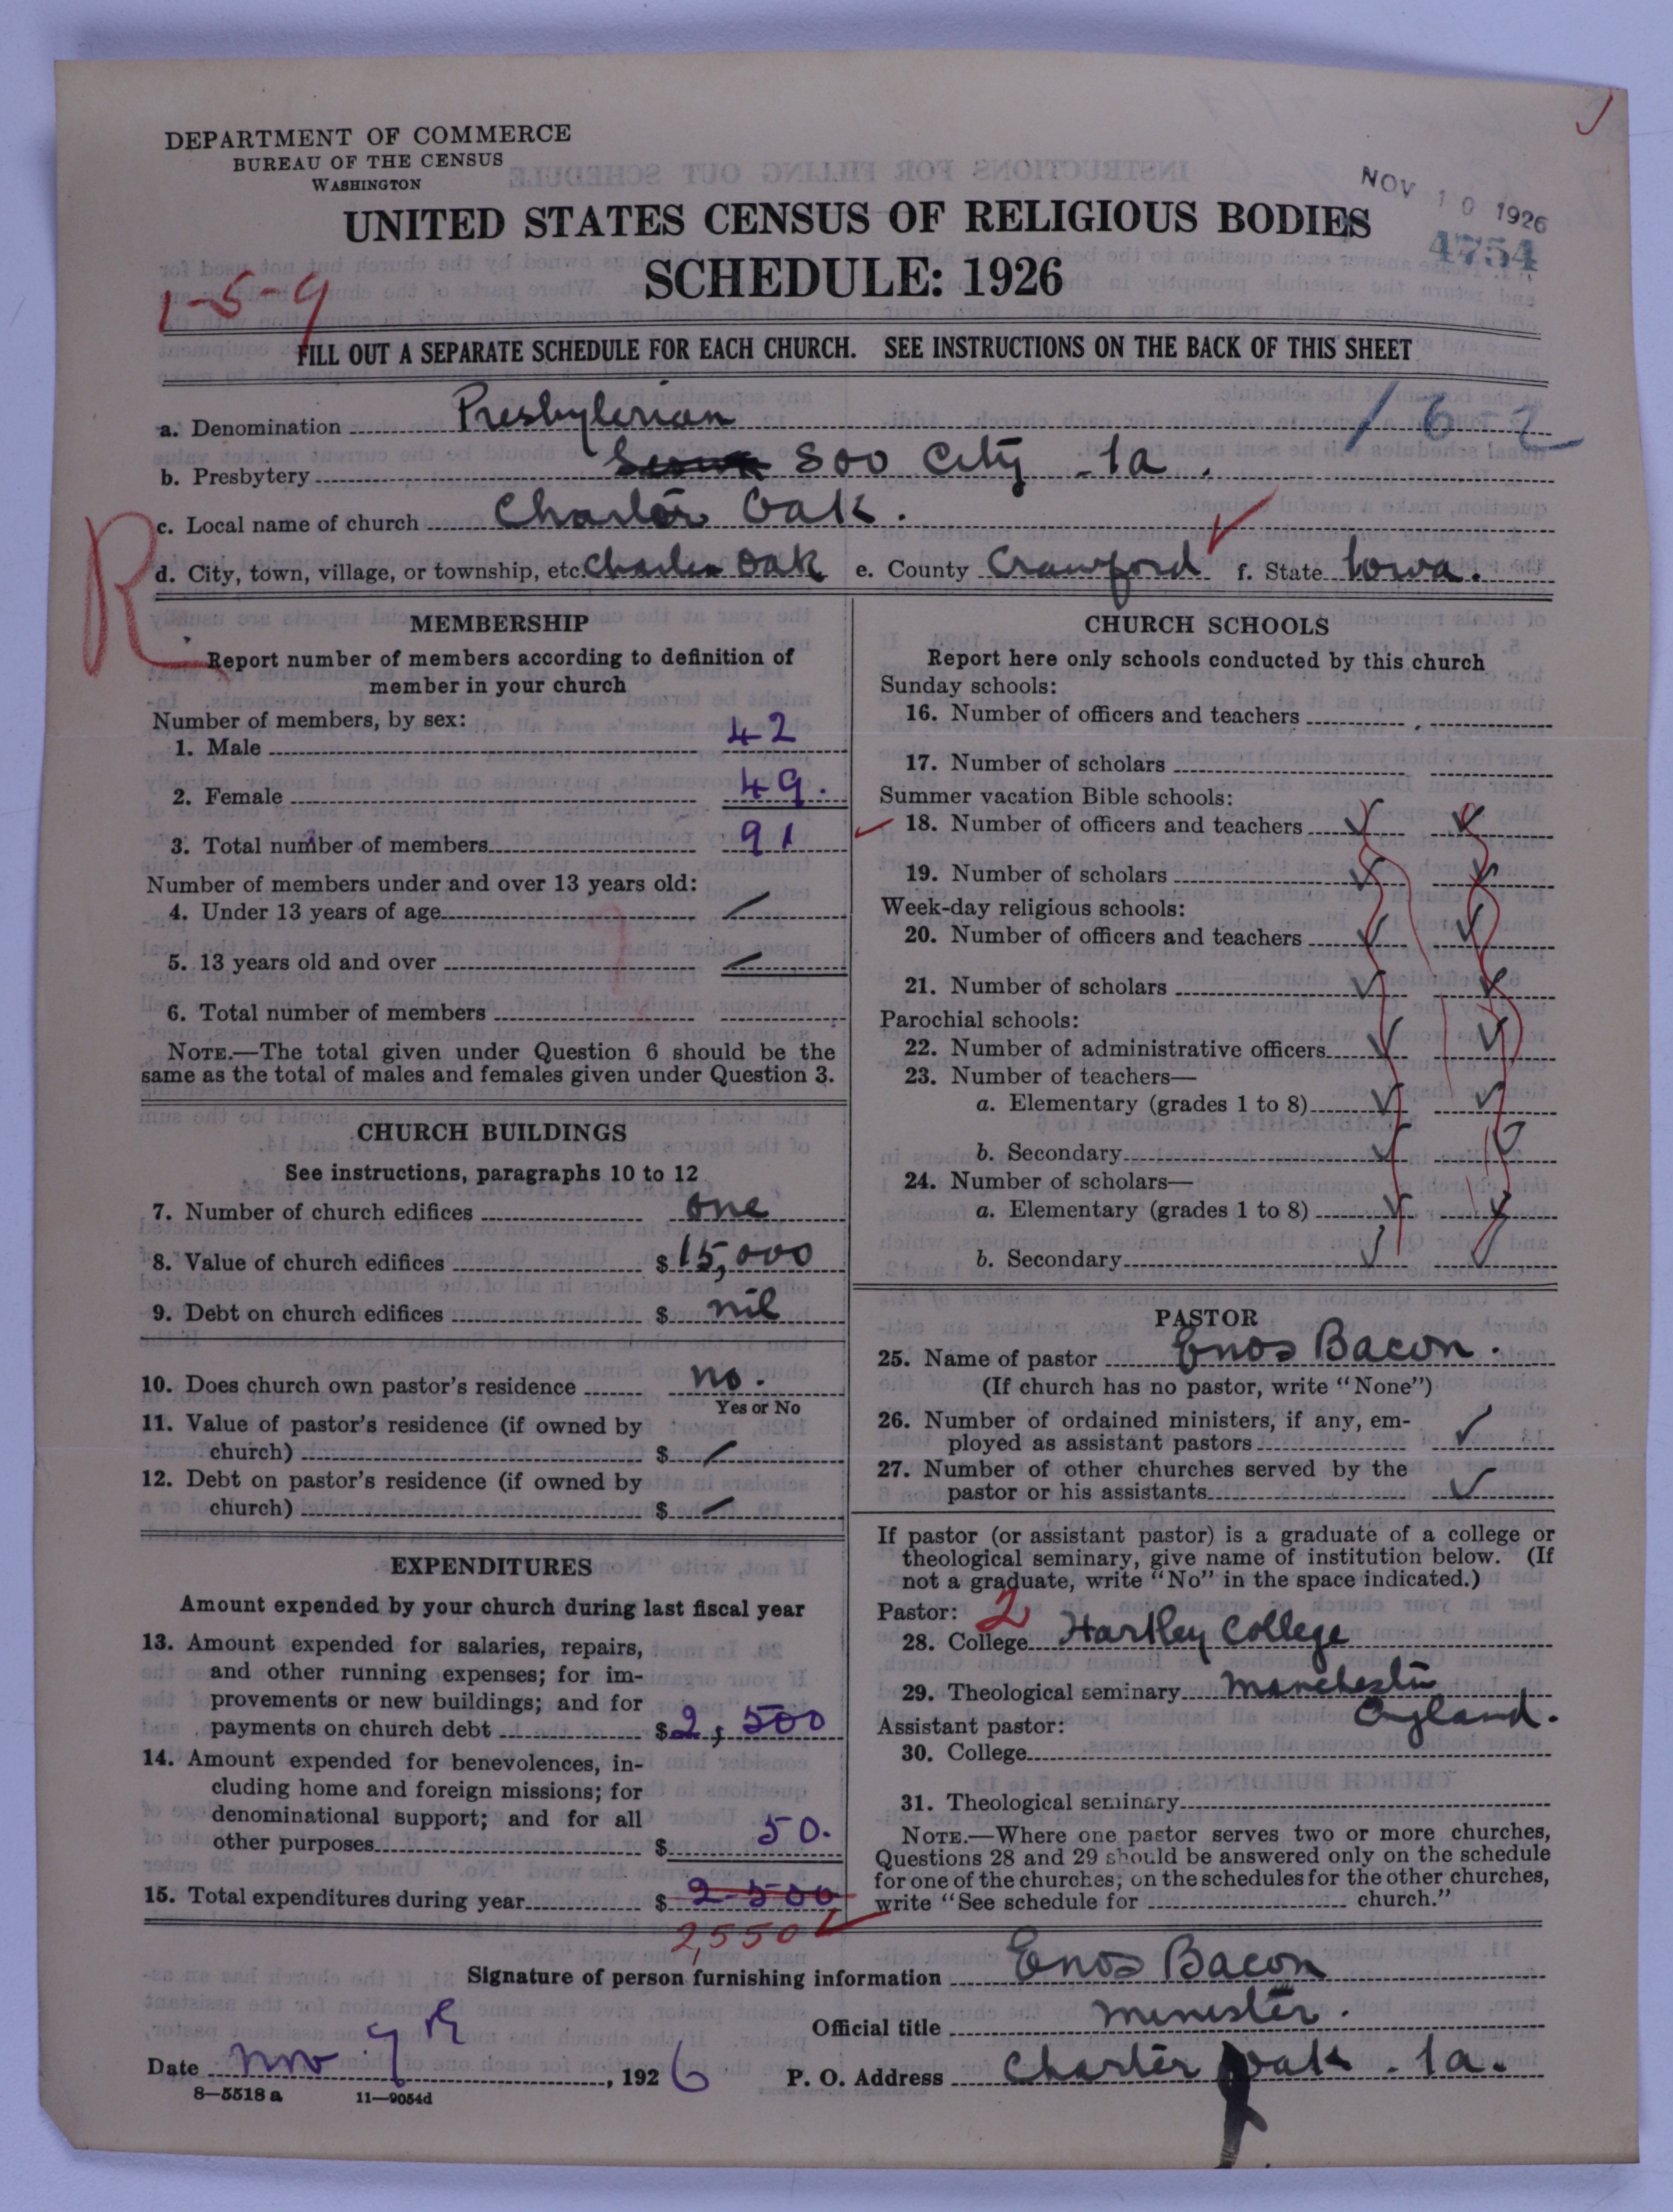 DEPARTMENT OF COMMERCE
BUREAU OF THE CENSUS
WASHINGTON
NOV 10 1926
4754
UNITED STATES CENSUS OF RELIGIOUS BODIES
SCHEDULE: 1926
1-5-9
FILL OUT A SEPARATE SCHEDULE FOR EACH CHURCH. SEE INSTRUCTIONS ON THE BACK OF THIS SHEET
162
a. Denomination Presbyterian
b. Presbytery Soo City - Ia.
c. Local name of church Charter Oak.
R
d. City, town, village, or township, etc. Charter Oak e. County Crawford f. State Iowa.
MEMBERSHIP
Report number of members according to definition of
member in your church
Number of members, by sex:
1. Male 42
2. Female 49.
3. Total number of members 91
Number of members under and over 13 years old:
4. Under 13 years of age
5. 13 years old and over
6. Total number of members
NOTE.—The total given under Question 6 should be the
same as the total of males and females given under Question 3.
CHURCH BUILDINGS
See instructions, paragraphs 10 to 12
7. Number of church edifices one
8. Value of church edifices $ 15,000
9. Debt on church edifices $ nil
10. Does church own pastor's residence no.
Yes or No
11. Value of pastor's residence (if owned by
church) $
12. Debt on pastor's residence (if owned by
church) $
EXPENDITURES
Amount expended by your church during last fiscal year
13. Amount expended for salaries, repairs,
and other running expenses; for im-
provements or new buildings; and for
payments on church debt $ 2,500
14. Amount expended for benevolences, in-
cluding home and foreign missions; for
denominational support; and for all
other purposes $ 50.
15. Total expenditures during year $ 2500
2,550
CHURCH SCHOOLS
Report here only schools conducted by this church
Sunday schools:
16. Number of officers and teachers
17. Number of scholars
Summer vacation Bible schools:
18. Number of officers and teachers
19. Number of scholars
Week-day religious schools:
20. Number of officers and teachers
21. Number of scholars
Parochial schools:
22. Number of administrative officers
23. Number of teachers—
a. Elementary (grades 1 to 8)
b. Secondary
24. Number of scholars—
a. Elementary (grades 1 to 8)
b. Secondary
PASTOR
25. Name of pastor Enos Bacon.
(If church has no pastor, write "None")
26. Number of ordained ministers, if any, em-
ployed as assistant pastors
27. Number of other churches served by the
pastor or his assistants
If pastor (or assistant pastor) is a graduate of a college or
theological seminary, give name of institution below. (If
not a graduate, write "No" in the space indicated.)
Pastor: 2
28. College Hartley College
29. Theological seminary Manchester
England.
Assistant pastor:
30. College
31. Theological seminary
NOTE.—Where one pastor serves two or more churches,
Questions 28 and 29 should be answered only on the schedule
for one of the churches; on the schedules for the other churches,
write "See schedule for church."
Signature of person furnishing information Enos Bacon
Official title minister.
Date Nov 9th, 1926 P. O. Address Charter Oak. Ia.
8—5518 a 11—9054d